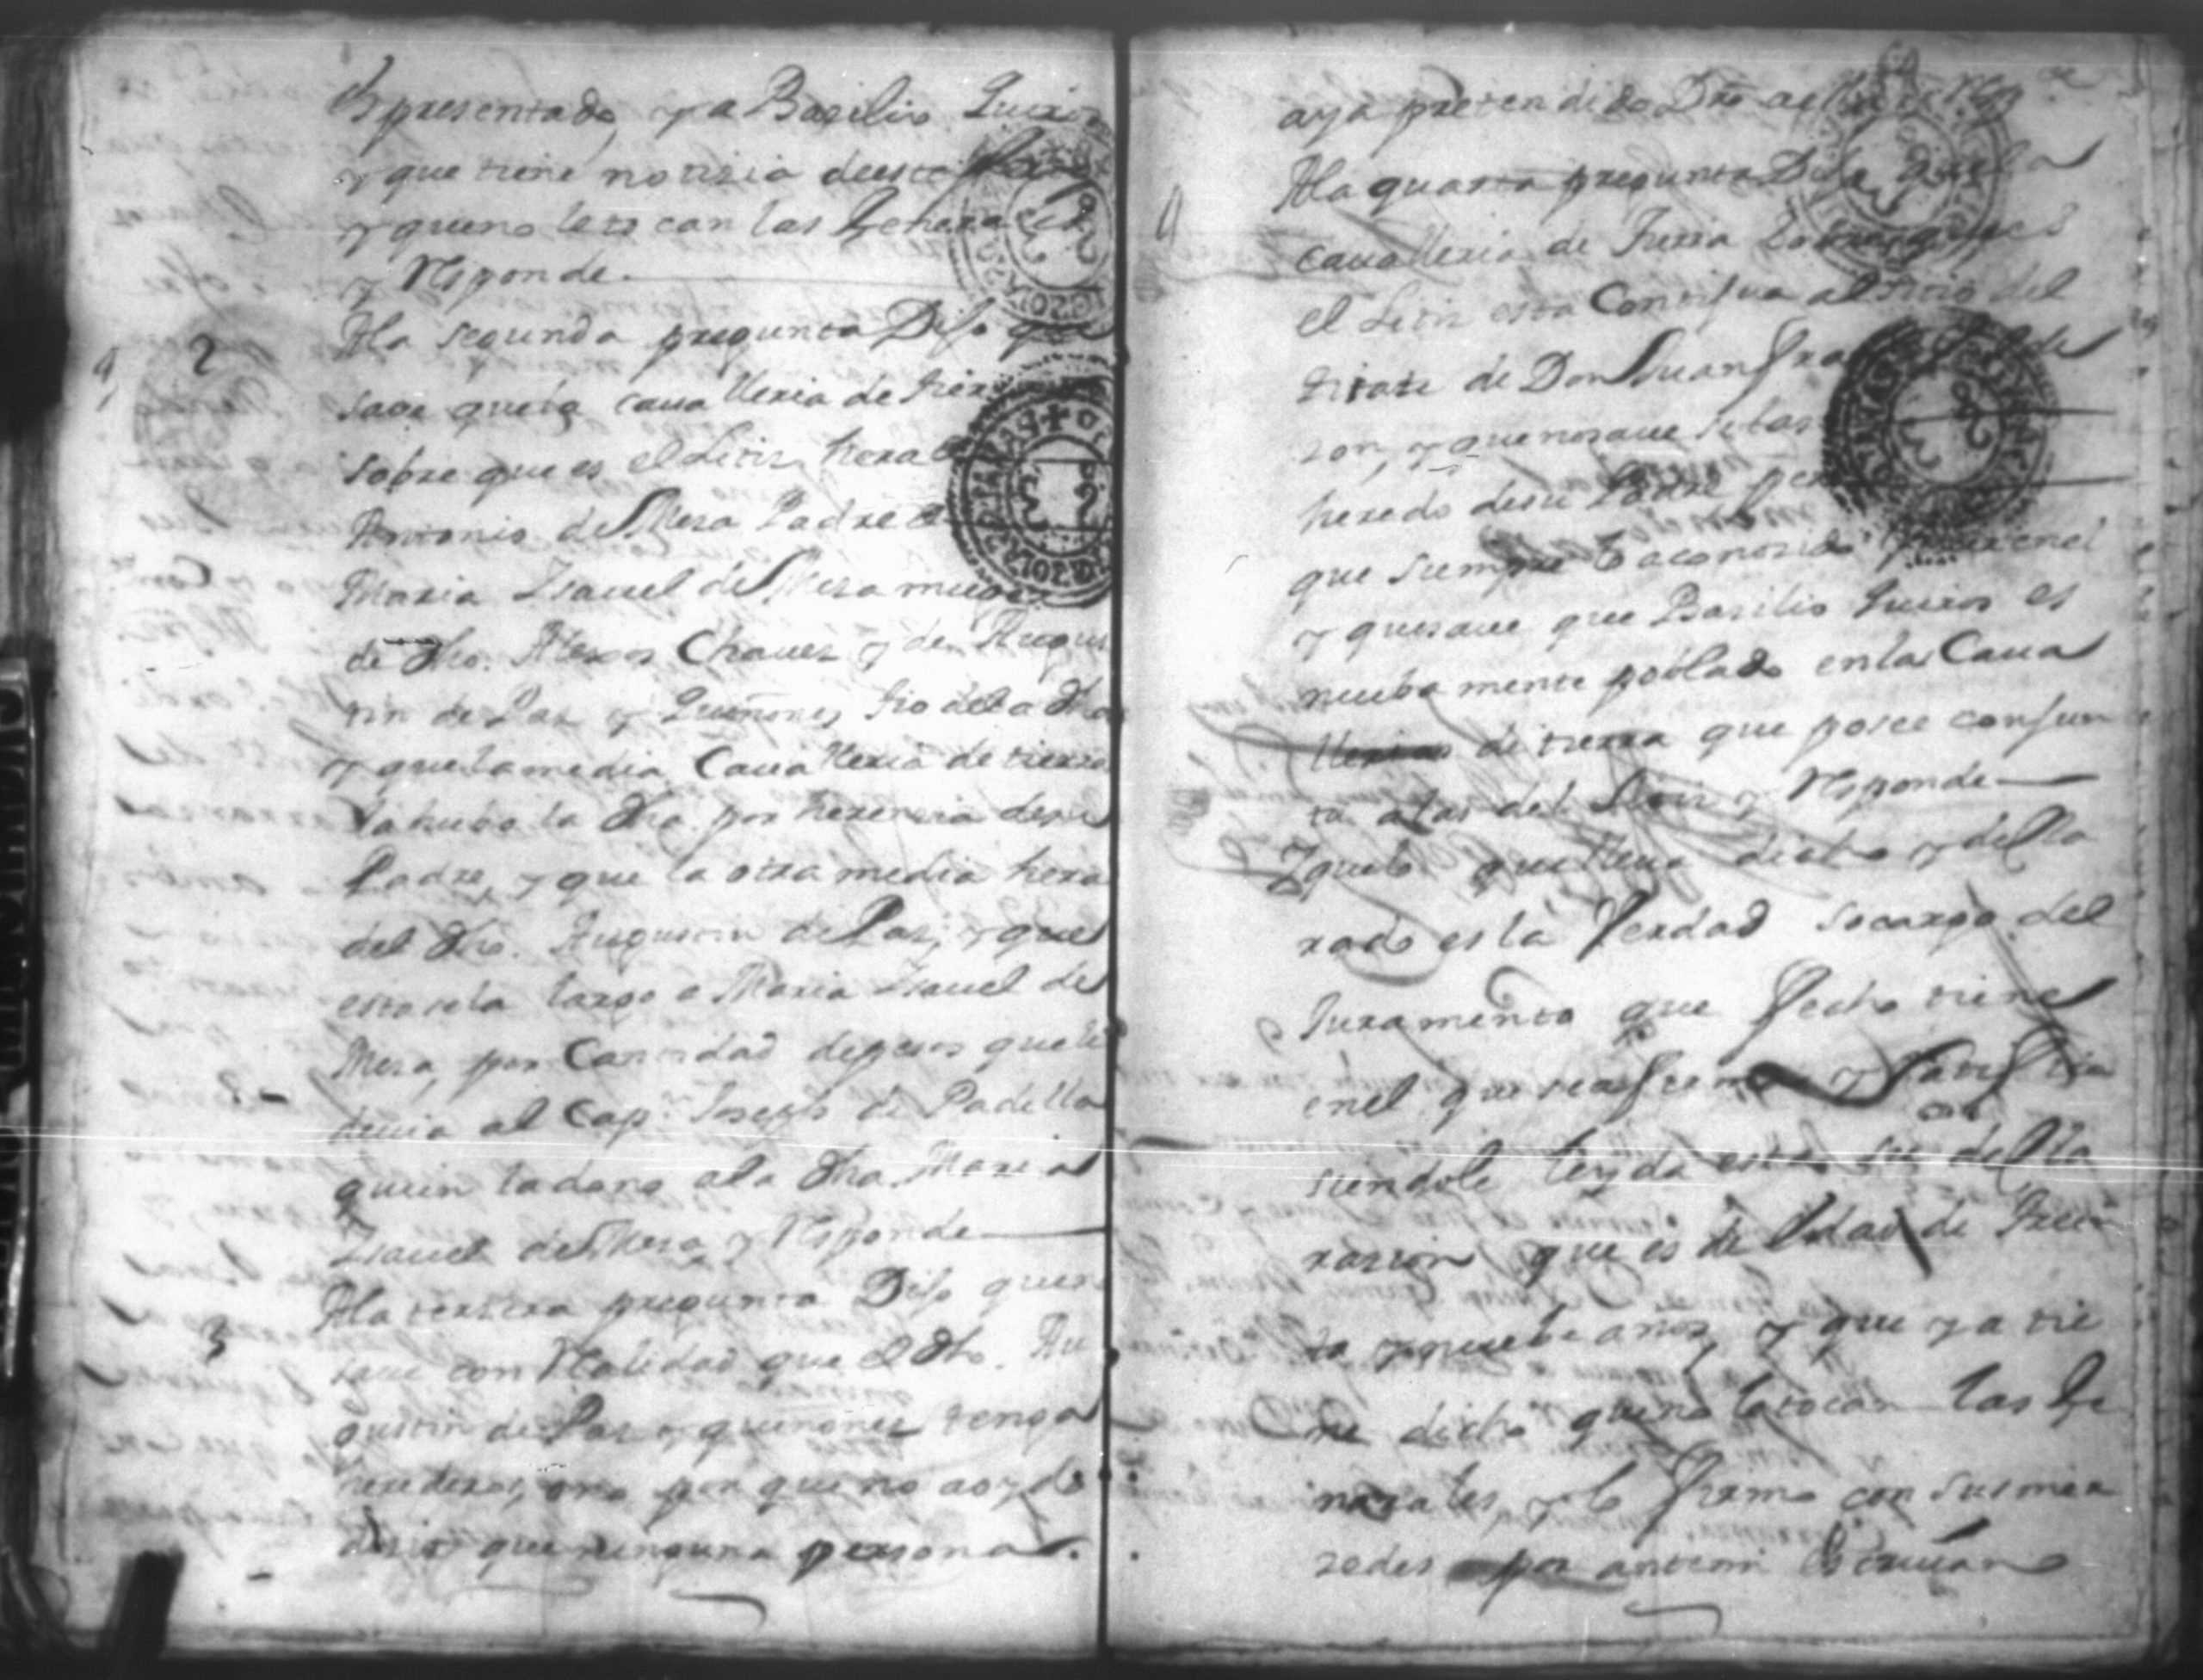 es presentado, y a Basilio Quiros
y que tiene notizia de este
y queno le to can las Generales
y Responde.
2
Ala segunda pregunta Dijo que
save que la cavalleria de tierra
sobre que es el Litis hera de
Antonio de Mesa Padre de
Maria Ysavel de Mesa muger
de dho. Alexos Chaues y de Augus
tin de Paz y Quiñones tio de la dha
y que la media Cavalleria de tierra
la hubo la dha. por herencia de su
Padre, y que la otra media hera
del dho. Augustin de Paz, y que
esta se la largo a Maria Ysavel de
Mesa, por Cantidad de pesos que le
devia al Capn. Joseph de Padilla
quien la dono a la dha. Maria
Ysavel de Mesa y Responde
3
Ala tersera pregunta Dijo que no
save con Realidad que el dho. Au
gustin de Paz y quiñones tenga
herederos, o no por que no a oydo
desir que ninguna persona.
aya pretendido Dro a
4
Ala quarta pregunta Dijo que la
cavalleria de tierra sobre que es
el Litis esta Contigua al sitio del
tirase de Don Juan
zon, y que no save si las
heredo de su Padre pero
que siempre lo a conosido en el
y que save que Basilio Quiros es
nueba mente poblado en la Cava
lleria de tierra que posee conjun
ta a las del Litis y Responde
Y que lo que lleva dicho y decla
rado es la Verdad so cargo del
Juramento que fecho tiene
en el que se afirmo y Ratifico
siendole leyda esta su decla
rasion que es de hedad de trein
ta y nuebe años, y que ya tie
ne dicho que no le tocan las Ge
nerales, y lo firmo con sus mer
zedes por antemi el escrivano